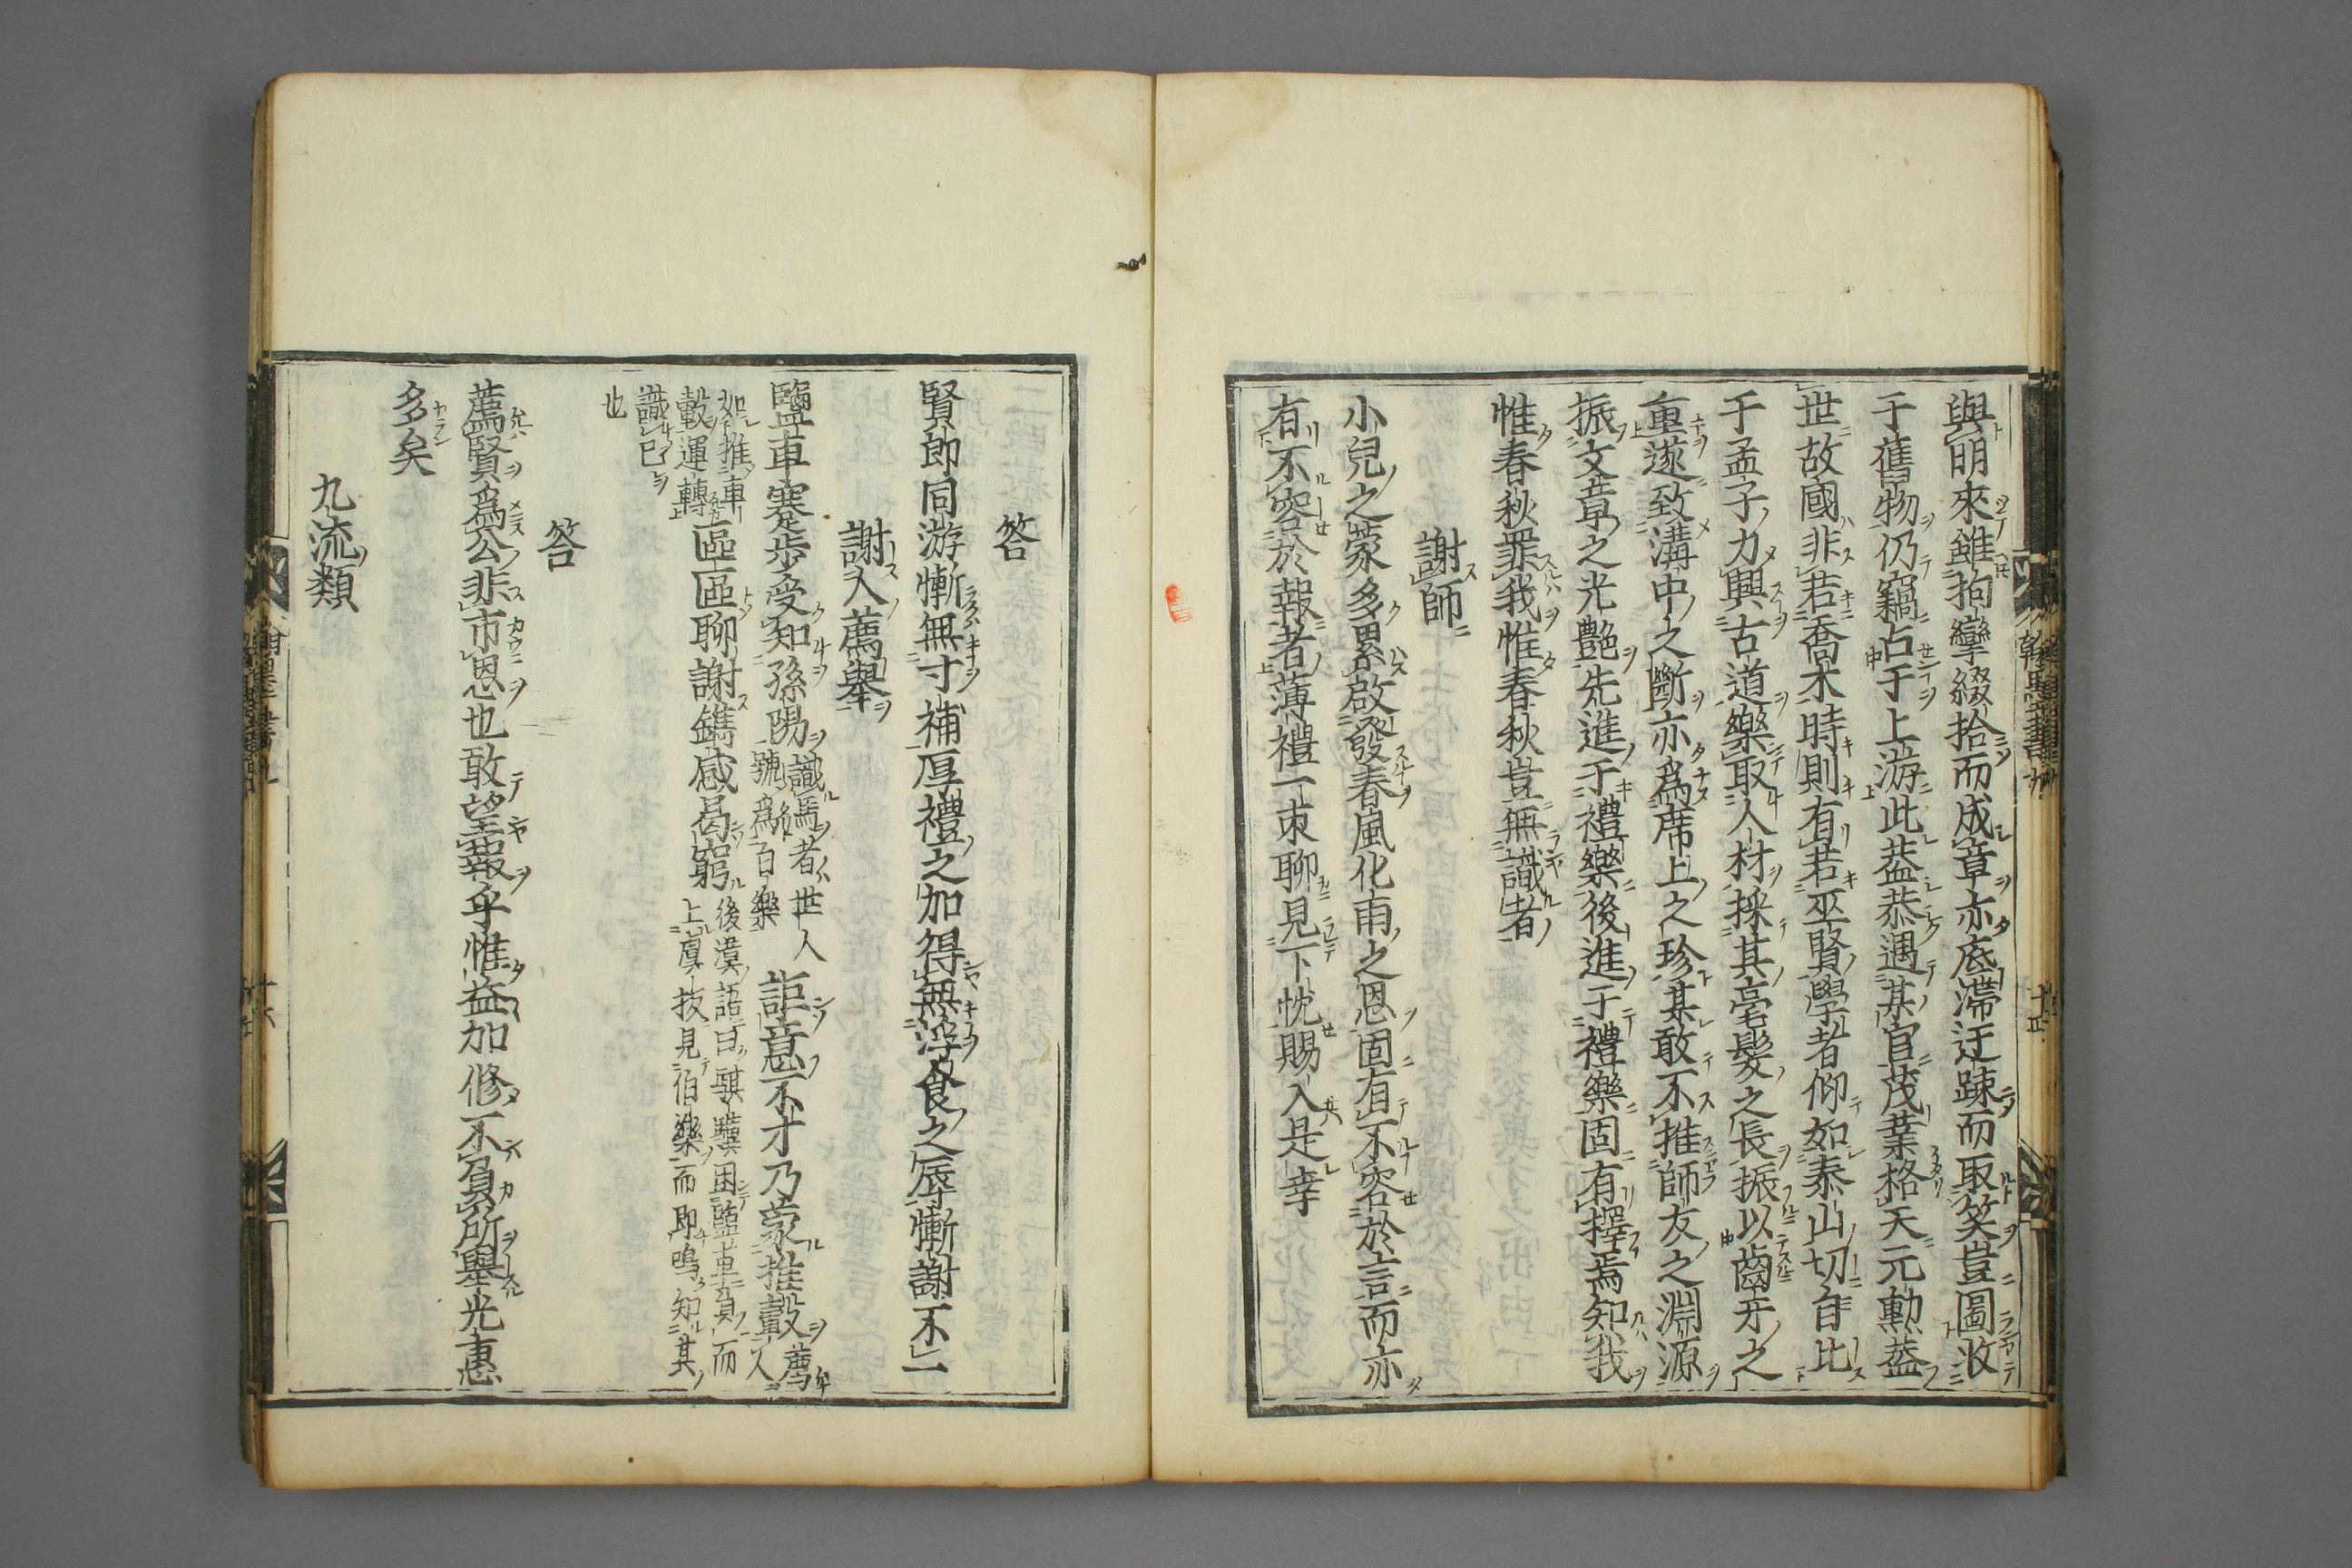 與明來雖拘攣綴拾而成章亦底滯迂疎而取笑豈圖收
于舊物仍竊占于上游此蓋恭遇某官茂業格天元勳蓋
世故國非若喬木時則有若巫賢學者仰如泰山切自比
于孟子力興古道樂取人材採其毫髮之長振以齒牙之
重遂致溝中之斷亦爲席上之珍某敢不推師友之淵源
振文章之光艷先進于禮樂後進于禮樂固有擇焉知我
惟春秋罪我惟春秋豈無識者
謝師
小兒之蒙多累啟發春風化雨之恩固有不容於言而亦
有不容於報者薄禮一束聊見下忱賜入是幸
答
賢郎同游慚無寸補厚禮之加得無浮食之辱慚謝不一
謝人薦舉
鹽車蹇步受知孫陽識馬者世人號爲白樂詎意不才乃蒙推轂薦人
如推車轂運轉區區聊謝鐫感曷窮後漢語曰騏驥困鹽車負而上虞扳見伯樂而即鳴知其
識已
也
答
薦賢爲公非市恩也敢望報乎惟益加修不負所舉光惠
多矣
九流類